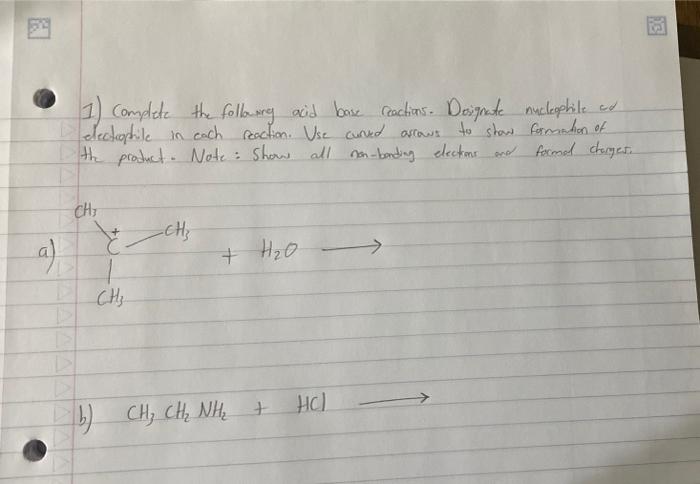 1) Complete the following acid base reactions. Designate nucleophile and
electrophile in each reaction. Use curved arrows to show formation of
the product. Note: Show all non-bonding electrons and formal charges.
CH3
+
a) C CH3 + H2O →
CH3
b) CH3 CH2 NH2 + HCl →